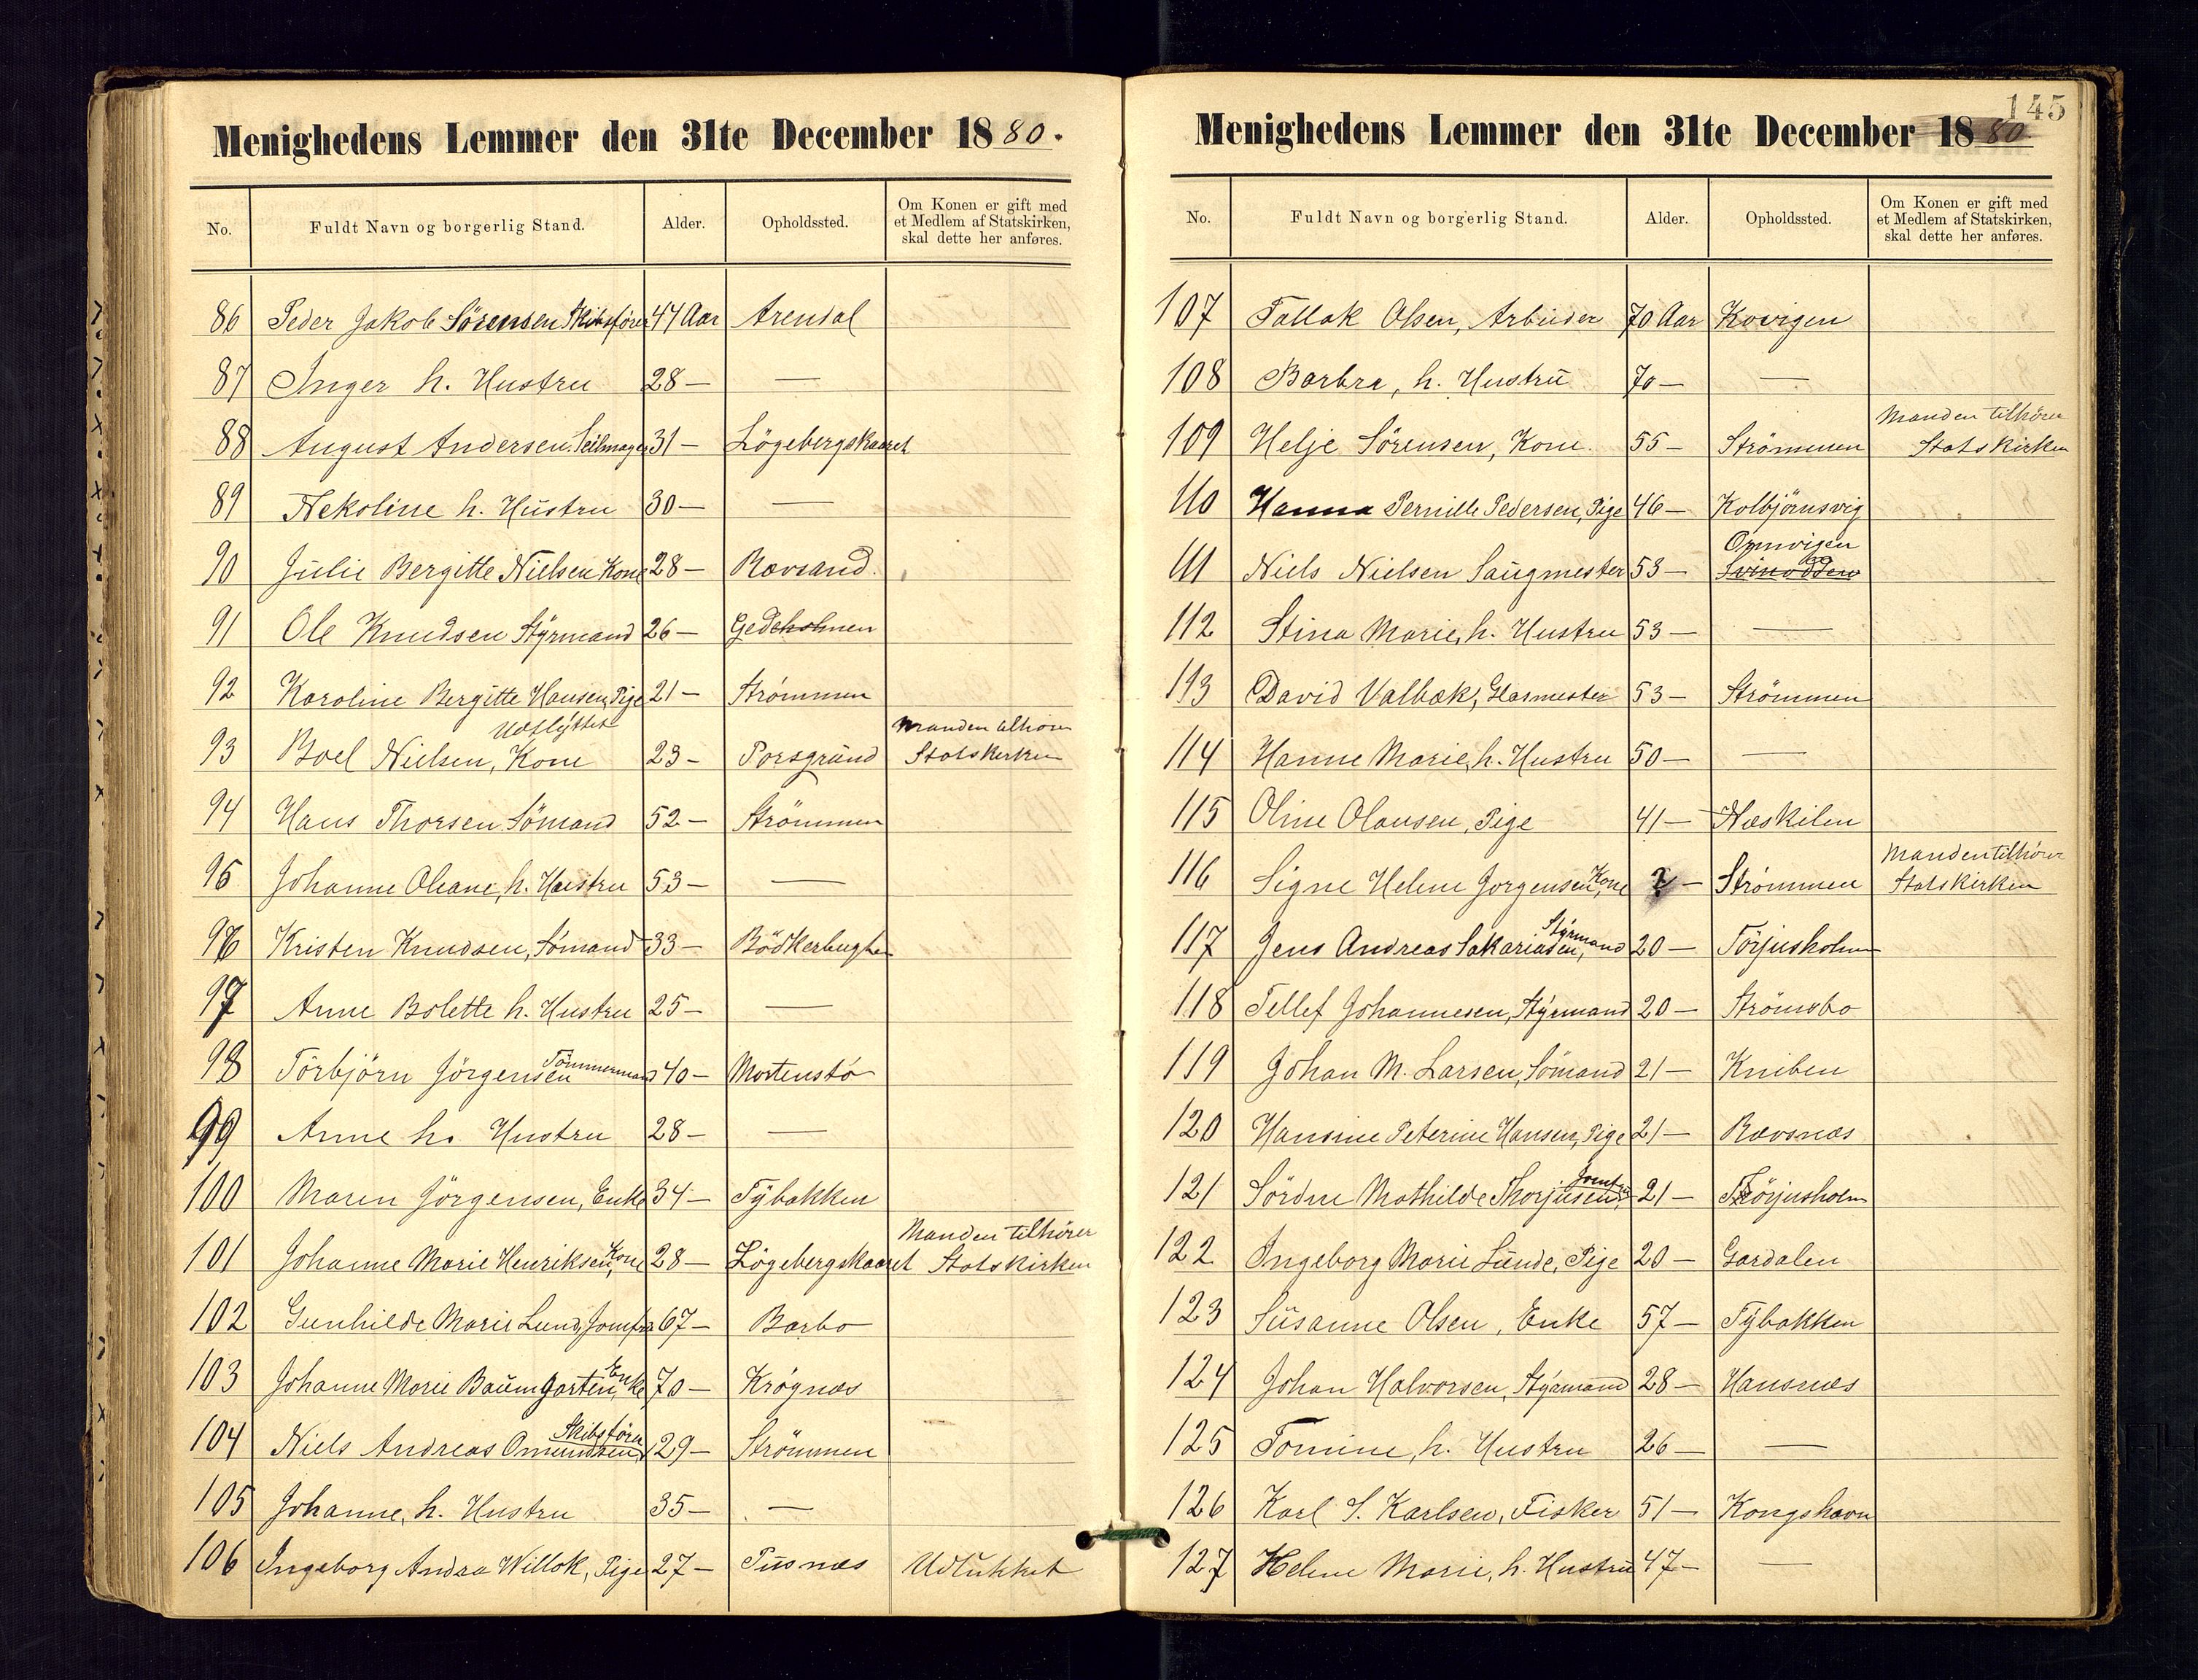 Menighedens Lemmer den 31te December 1880.
No. Fuldt Navn og borgerlig Stand. Alder. Opholdssted. Om Konen er gift med
et Medlem af Statskirken,
skal dette her anføres.
86 Peder Jakob Sörensen Skibsfører 47 Aar Arendal
87 Inger h. Hustru 28 — —
88 August Andersen, Seilmager 31 — Lögebergskaaret
89 Nekoline h. Hustru 30 — —
90 Julie Bergitte Nielsen Kone 28 — Rævsand.
91 Ole Knudsen Styrmand 26 — Gedeholmen
92 Karoline Bergitte Hansen, Pige 21 — Strömmen
Udflyttet Manden tilhører
93 Boel Nielsen, Kone 23 — Porsgrund Statskirken
94 Hans Thorsen Sömand 52 — Strömmen
95 Johanne Oleane, h. Hustru 53 — —
96 Kristen Knudsen, Sömand 33 — Bödkerbugten
97 Anne Bolette h. Hustru 25 — —
98 Törbjörn Jörgensen Tömmermand 40 — Mortenstö
99 Anne h. Hustru 28 — —
100 Maren Jörgensen, Enke 34 — Tybakken
Manden tilhører
101 Johanne Marie Henriksen, Kone 28 — Lögebergskaaret Statskirken
102 Gunhilde Marie Lund, Jomfru 67 — Barbo
103 Johanne Marie Baumgarten, Enke 70 — Krögnæs
104 Niels Andreas Omundsen, Skibsfører 29 — Strömmen
105 Johanne, h. Hustru 35 — —
106 Ingeborg Andrea Willok, Pige 27 — Tusnæs Udlukket
145
Menighedens Lemmer den 31te December 1880
No. Fuldt Navn og borgerlig Stand. Alder. Opholdssted. Om Konen er gift med
et Medlem af Statskirken,
skal dette her anføres.
107 Tallak Olsen, Arbeider 70 Aar Kovigen
108 Barbra, h. Hustru 70 — —
Manden tilhører
109 Helje Sörensen, Kone. 55 — Strömmen Statskirken
110 Hanna Pernille Pedersen, Pige 46 — Kolbjörnsvig
Ormvigen
111 Niels Nielsen Saugmester 53 — Svinodden
112 Stina Marie, h. Hustru 53 — —
113 David Valbæk, Glasmester 53 — Strömmen
114 Hanne Marie, h. Hustru 50 — —
115 Oline Olausen, Pige 41 — Næskilen
Manden tilhører
116 Signe Helene Jorgensen, Kone ? — Strömmen Statskirken
117 Jens Andreas Sakariasen, Styrmand 20 — Törjusholm
118 Tellef Johannesen, Styrmand 20 — Strömsbo
119 Johan M. Larsen, Sömand 21 — Kniben
120 Hansine Peterine Hansen, Pige 21 — Rævsnæs
121 Sördne Mathilde Thorjusen, Jomfru 21 — Törjusholm
122 Ingeborg Marie Lunde, Pige 20 — Gardalen
123 Susanne Olsen, Enke 57 — Tybakken
124 Johan Halvorsen, Styrmand 28 — Hansnæs
125 Tomine, h. Hustru 26 — —
126 Karl S. Karlsen, Fisker 51 — Kongshavn
127 Helene Marie, h. Hustru 47 — —